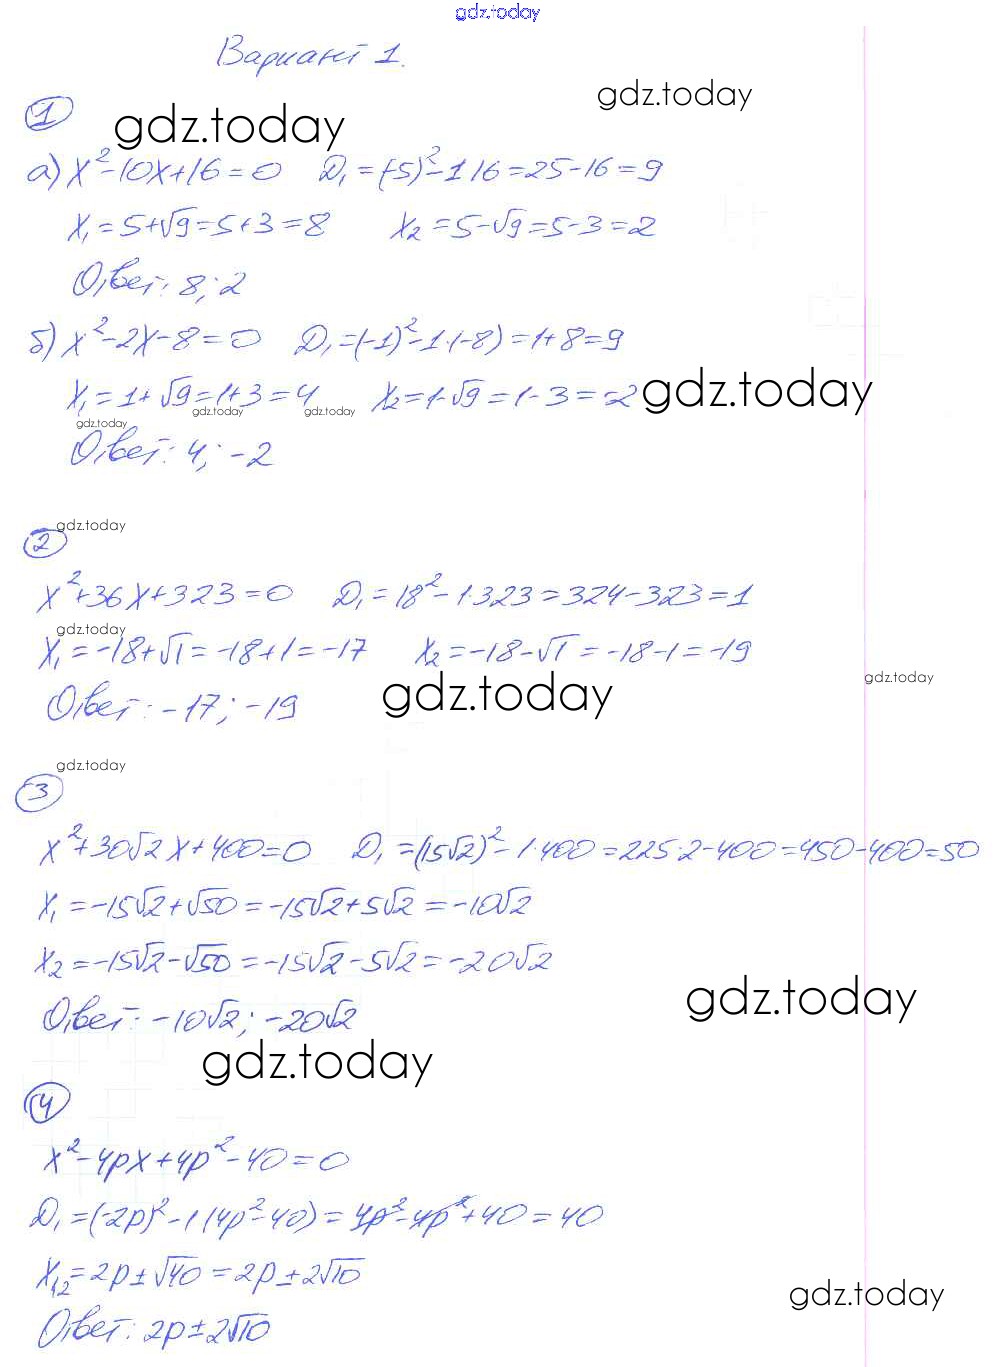 gdz.today
Вариант 1.
gdz.today
1
gdz.today
а) x²-10x+16=0 D₁=(-5)²-1·16=25-16=9
x₁=5+√9=5+3=8 x₂=5-√9=5-3=2
Ответ: 8; 2
б) x²-2x-8=0 D₁=(-1)²-1·(-8)=1+8=9
x₁=1+√9=1+3=4 x₂=1-√9=1-3=-2 gdz.today
gdz.today gdz.today
gdz.today
Ответ: 4; -2
gdz.today
2
x²+36x+323=0 D₁=18²-1·323=324-323=1
gdz.today
x₁=-18+√1=-18+1=-17 x₂=-18-√1=-18-1=-19
gdz.today
gdz.today
Ответ: -17; -19
gdz.today
3
x²+30√2x+400=0 D₁=(15√2)²-1·400=225·2-400=450-400=50
x₁=-15√2+√50=-15√2+5√2=-10√2
x₂=-15√2-√50=-15√2-5√2=-20√2
gdz.today
Ответ: -10√2; -20√2
gdz.today
4
x²-4px+4p²-40=0
D₁=(-2p)²-1(4p²-40)=4p²-4p²+40=40
x₁,₂=2p±√40=2p±2√10
gdz.today
Ответ: 2p±2√10